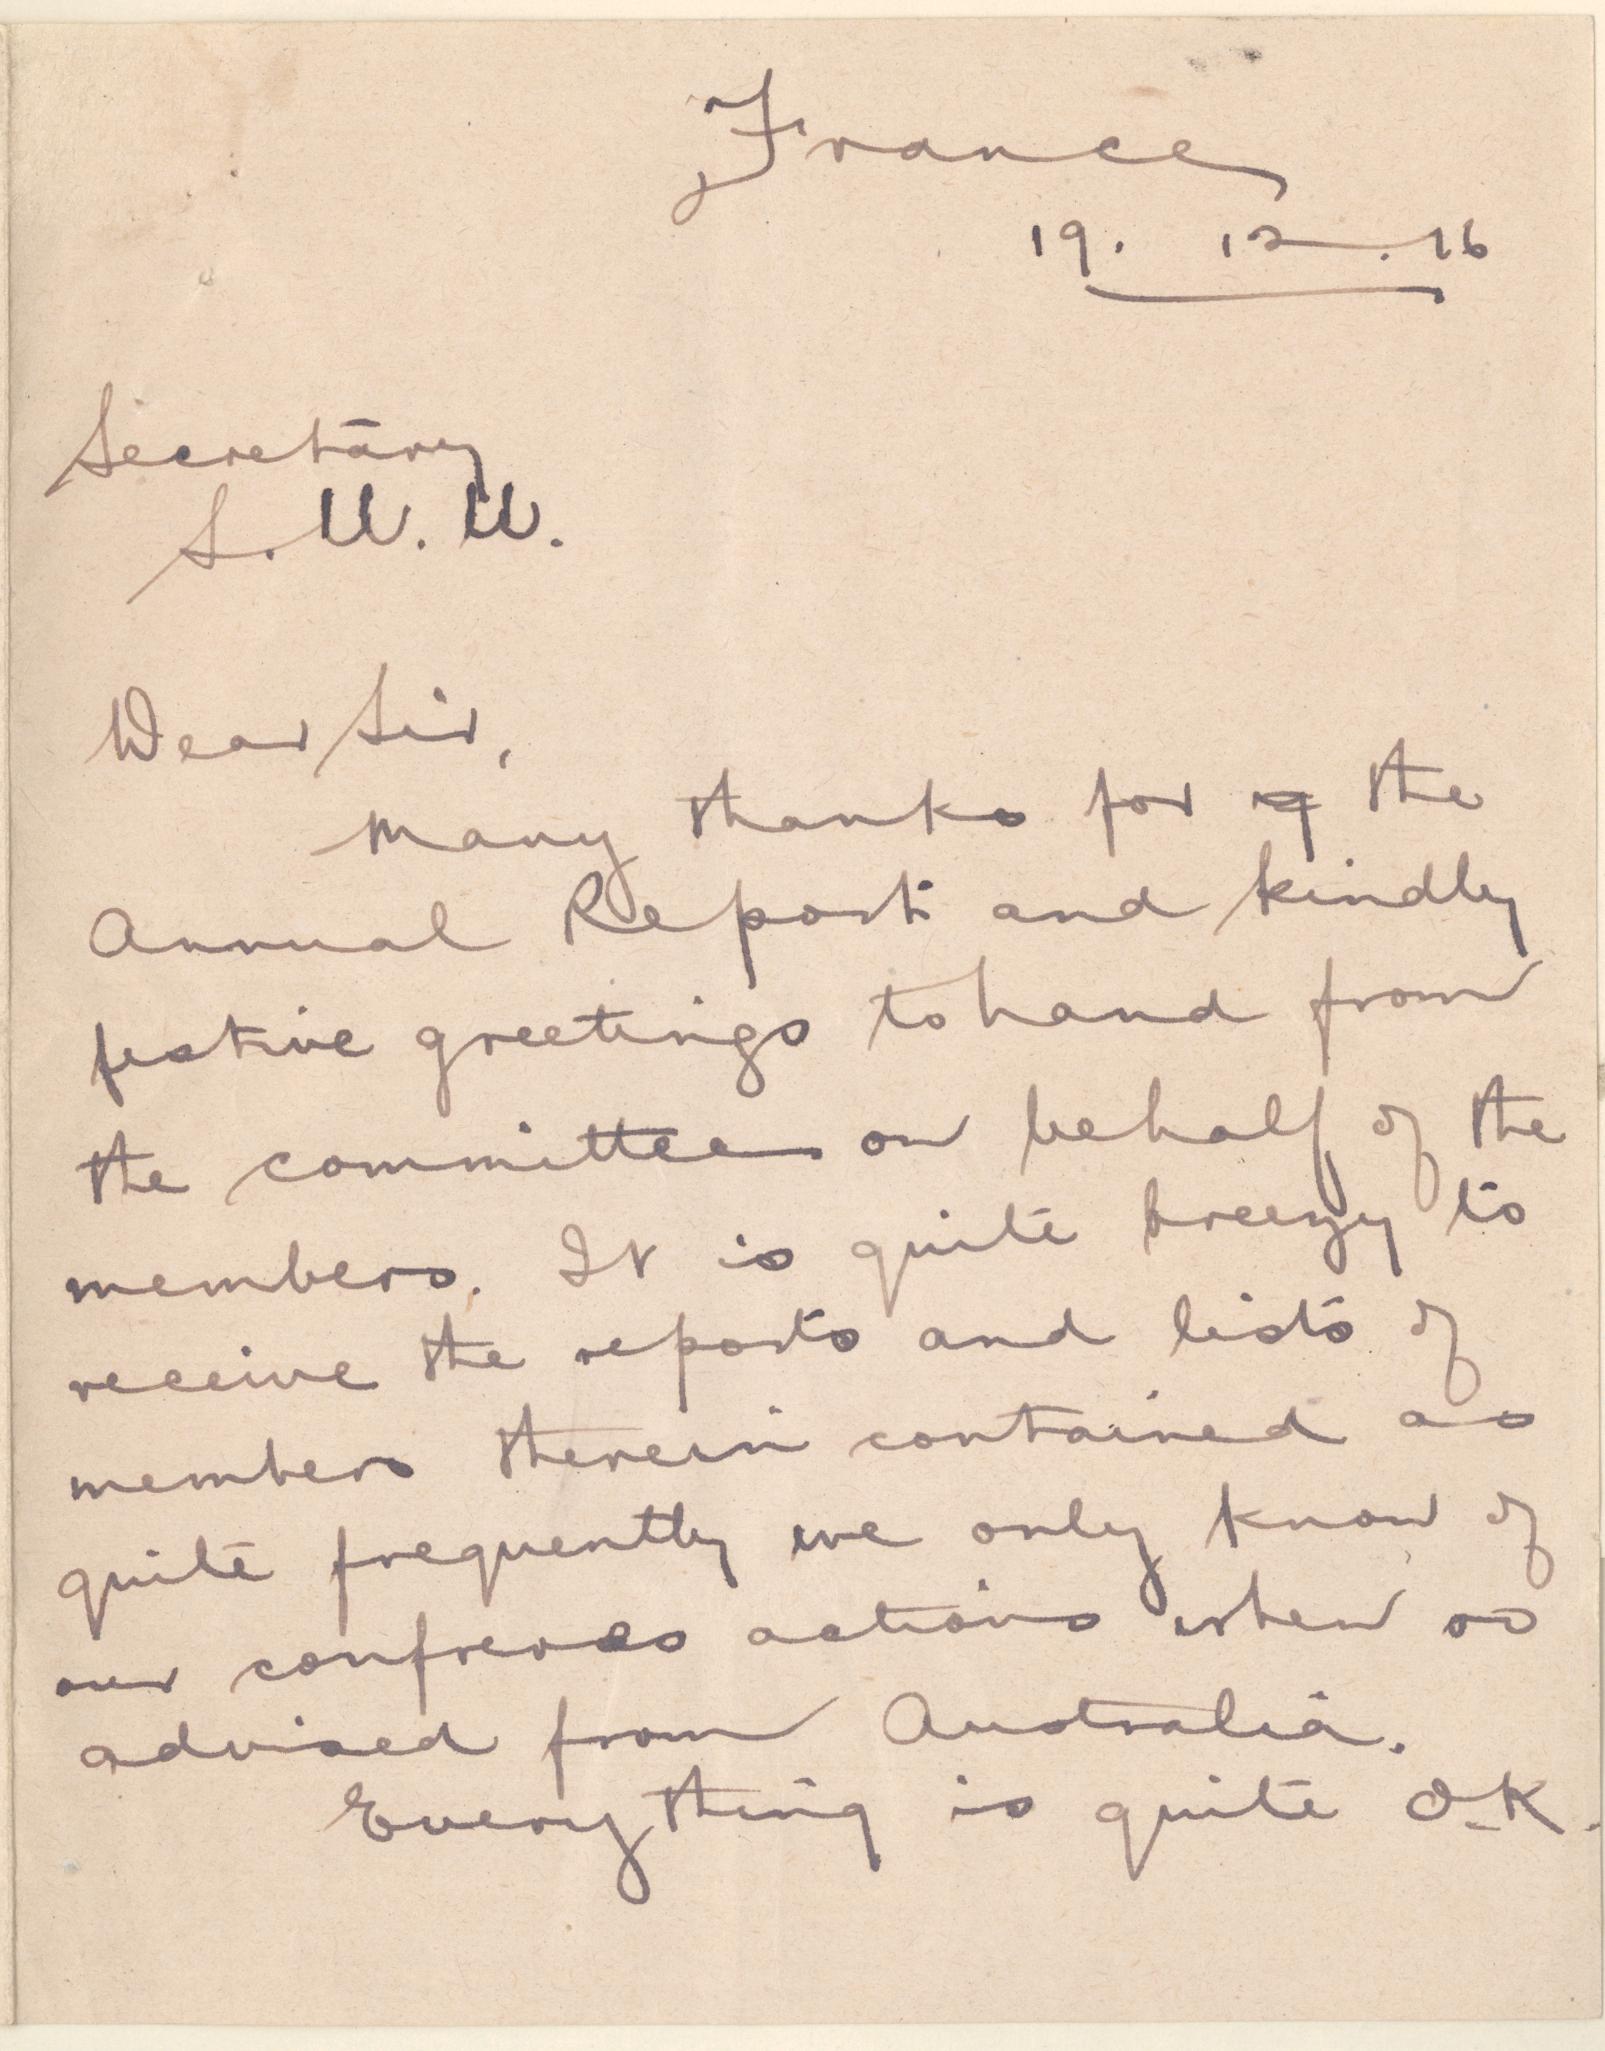 France
19. 12. 16
Secretary
S. U. U.
Dear Sir,
Many thanks for the
Annual Report and kindly
festive greetings to hand from
the committee on behalf of the
members. It is quite breezy to
receive the reports and lists of
members therein contained as
quite frequently we only know of
our confreres actions when so
advised from Australia.
Everything is quite O.K.